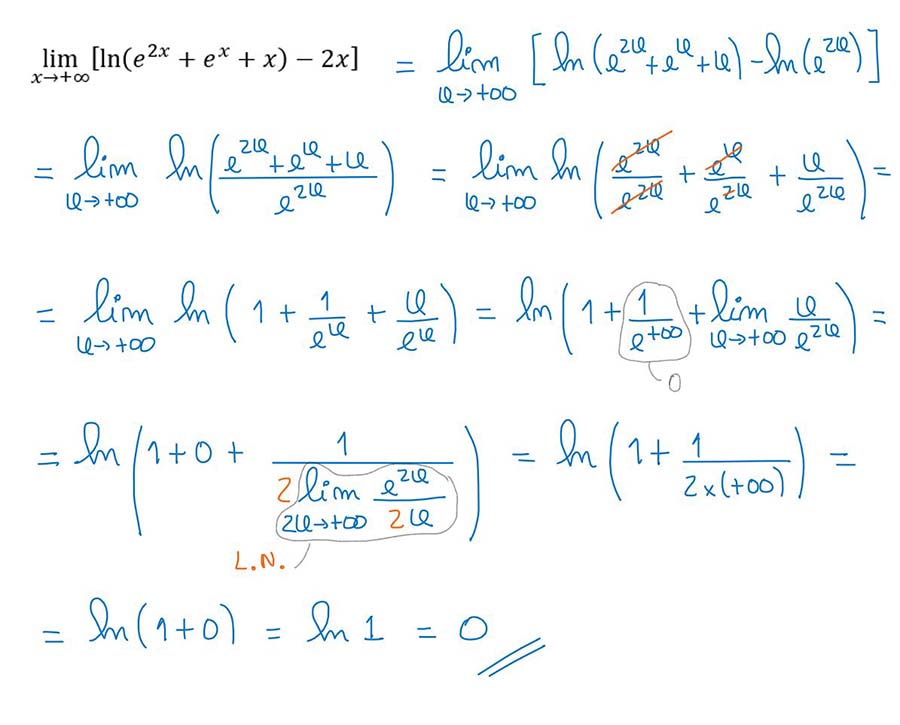 lim x→+∞ [ln(e^{2x} + e^x + x) − 2x] = lim x→+∞ [ln(e^{2x}+e^x+x)−ln(e^{2x})]
= lim x→+∞ ln((e^{2x}+e^x+x)/e^{2x}) = lim x→+∞ ln(e^{2x}/e^{2x} + e^x/e^{2x} + x/e^{2x}) =
= lim x→+∞ ln(1 + 1/e^x + x/e^x) = ln(1+ 1/e^{+∞} + lim x→+∞ x/e^{2x}) =
0
= ln(1+0 + 1/(2 lim 2x→+∞ e^{2x}/2x)) = ln(1+ 1/(2×(+∞))) =
L.N.
= ln(1+0) = ln 1 = 0